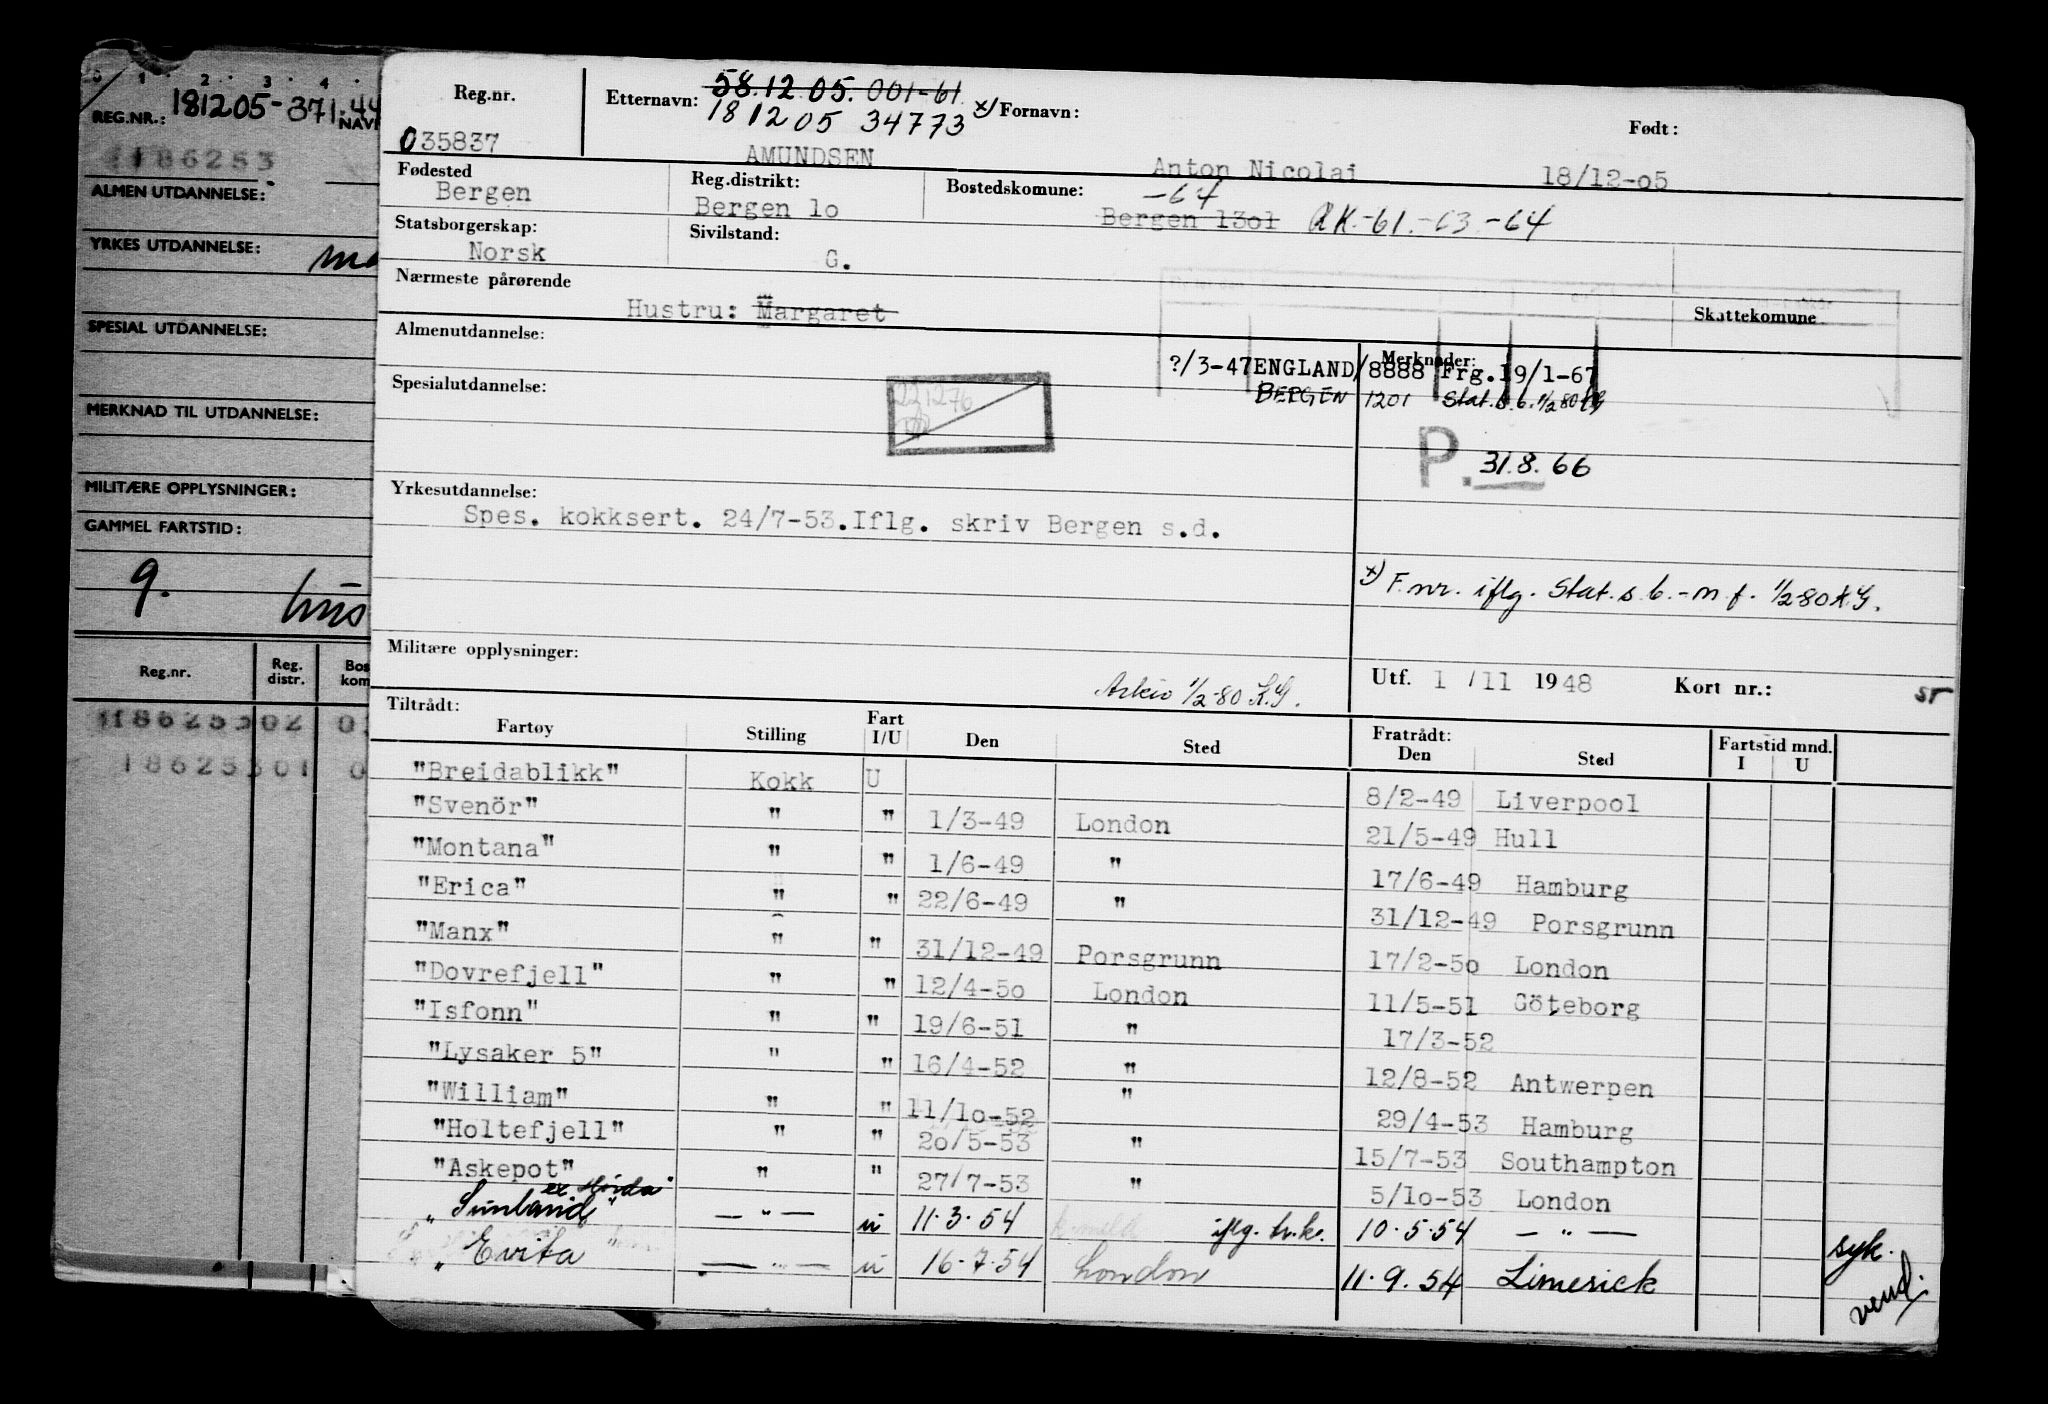 1 2 3 4
REG.NR.: 181205-371.44
NAV
1186253
ALMEN UTDANNELSE:
YRKES UTDANNELSE:
SPESIAL UTDANNELSE:
MERKNAD TIL UTDANNELSE:
MILITÆRE OPPLYSNINGER:
GAMMEL FARTSTID:
9.
Reg.nr. Reg. distr. Bos kom
118625302
18625301
Reg.nr. 035837
Etternavn: 58.12.05.001-61
181205 34773 x) Fornavn: Født:
AMUNDSEN Anton Nicolai 18/12-05
Fødested Reg.distrikt: Bostedskomune: -64
Bergen Bergen 10 Bergen 1301 RK.-61.-63.-64
Statsborgerskap: Sivilstand:
Norsk G.
Nærmeste pårørende
Hustru: Margaret Skattekomune
Almenutdannelse: Merknader:
?/3-47ENGLAND/8888 Frg.19/1-67
Spesialutdannelse: BERGEN 1201 Stat.s.b. 1/2 80 KG
221276
P. 31.8.66
Yrkesutdannelse:
Spes. kokksert. 24/7-53.Iflg. skriv Bergen s.d.
x) F.nr. iflg. Stat.s.b.-m.f. 1/2-80 K.G.
Militære opplysninger:
Arkiv 1/2-80 K.G.
Utf. 1 / 11 1948 Kort nr.: ST
Tiltrådt: Fratrådt: Fartstid mnd.
Fartøy Stilling Fart I/U Den Sted Den Sted I U
"Breidablikk" Kokk U 8/2-49 Liverpool
"Svenör" " " 1/3-49 London 21/5-49 Hull
"Montana" " " 1/6-49 " 17/6-49 Hamburg
"Erica" " " 22/6-49 " 31/12-49 Porsgrunn
"Manx" " " 31/12-49 Porsgrunn 17/2-50 London
"Dovrefjell" " " 12/4-50 London 11/5-51 Göteborg
"Isfonn" " " 19/6-51 " 17/3-52
"Lysaker 5" " " 16/4-52 " 12/8-52 Antwerpen
"William" " " 11/10-52 " 29/4-53 Hamburg
"Holtefjell" " " 20/5-53 " 15/7-53 Southampton
"Askepot" " " 27/7-53 " 5/10-53 London
ex Hørda"
"Sunland" — " — u 11.3.54 iflg. h.k. 10.5.54 — " — syk.
"Evita — " — u 16.7.54 London 11.9.54 Limerick
vend.